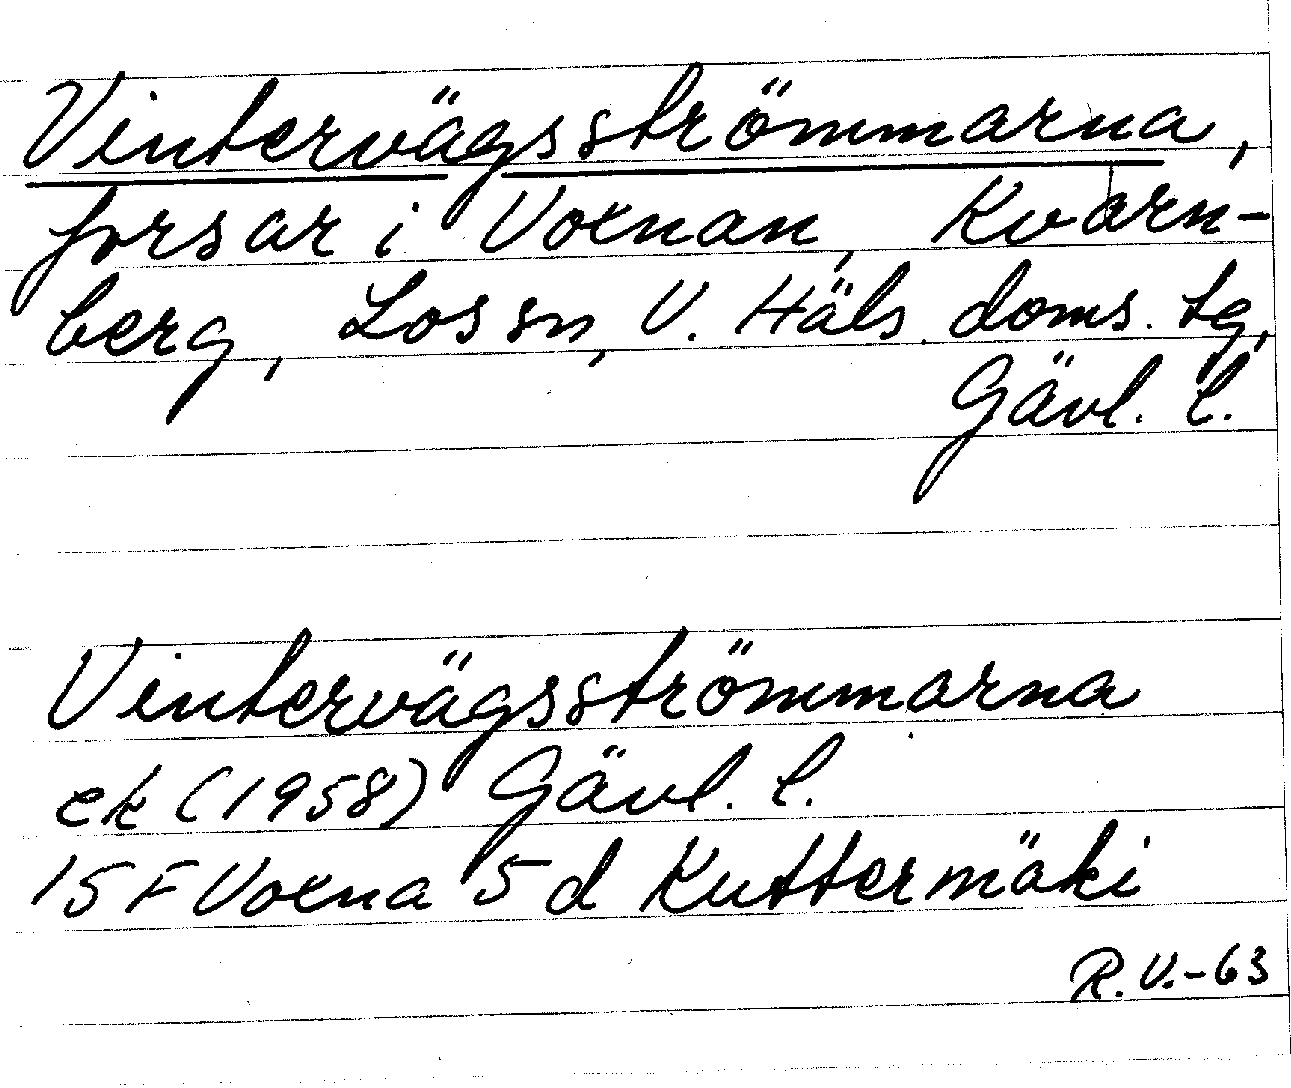 Vintervägsströmmarna,
forsar i Voxnan, Kvarn-
berg, Los sn, V. Häls. doms. tg,
Gävl. l.
Vintervägsströmmarna
ek (1958) Gävl. l.
15 F Voxna 5 d Kuttermäki
R.V.-63